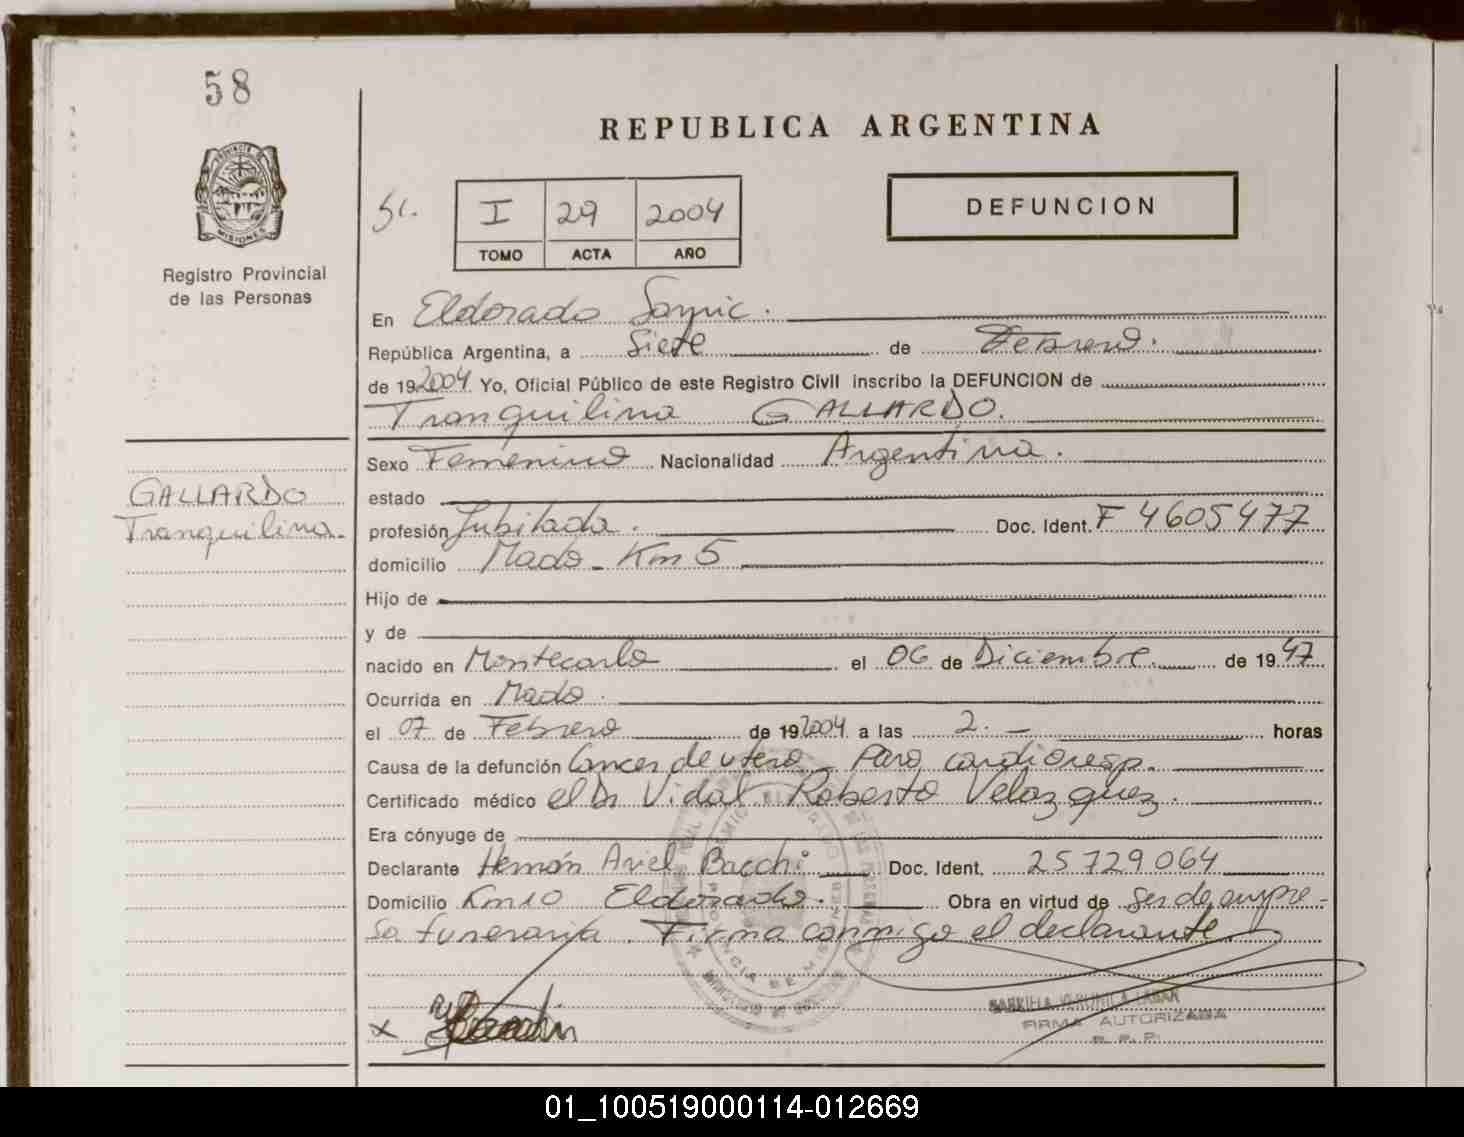 58
REPUBLICA ARGENTINA
PROVINCIA DE
MISIONES
Registro Provincial
de las Personas
I 29 2004
TOMO ACTA AÑO
DEFUNCION
En Eldorado Samic.
República Argentina, a Siete de Febrero.
de 192004. Yo, Oficial Público de este Registro Civil inscribo la DEFUNCION de
Tranquilina GALLARDO.
GALLARDO
Tranquilina.
Sexo Femenino Nacionalidad Argentina.
estado
profesión Jubilada. Doc. Ident. F 4605477
domicilio Mado - Km 5
Hijo de
y de
nacido en Montecarlo el 06 de Diciembre de 1947
Ocurrida en Mado.
el 07 de Febrero de 192004 a las 2. — horas
Causa de la defunción Cancer de utero - Paro cardioresp.
Certificado médico el Dr Vidal Roberto Velazquez.
Era cónyuge de
Declarante Hernán Ariel Bacchi Doc. Ident. 25729064
Domicilio Km 10 Eldorado. Obra en virtud de ser de empre-
sa funeraria. Firma conmigo el declarante.
x
GABRIELA VERONICA
FIRMA AUTORIZADA
R. P. P.
01_100519000114-012669